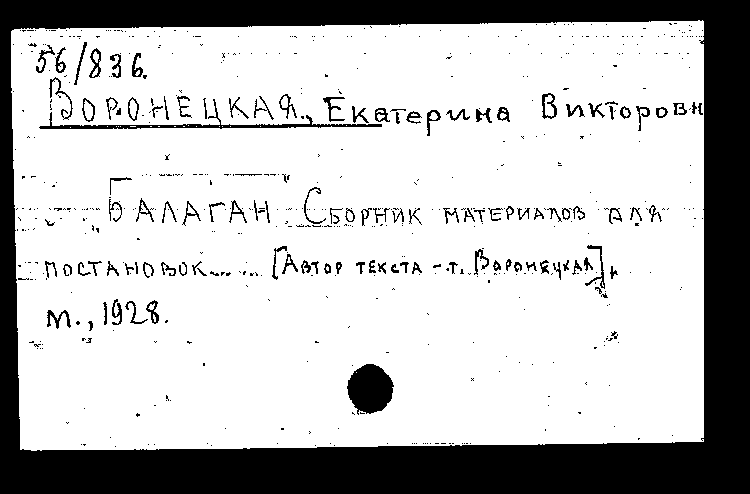 56/836.
Воронецкая, Екатерина Викторовн
"Балаган". Сборник материалов для
постановок...... [Автор текста - т. Воронецкая],
М., 1928.